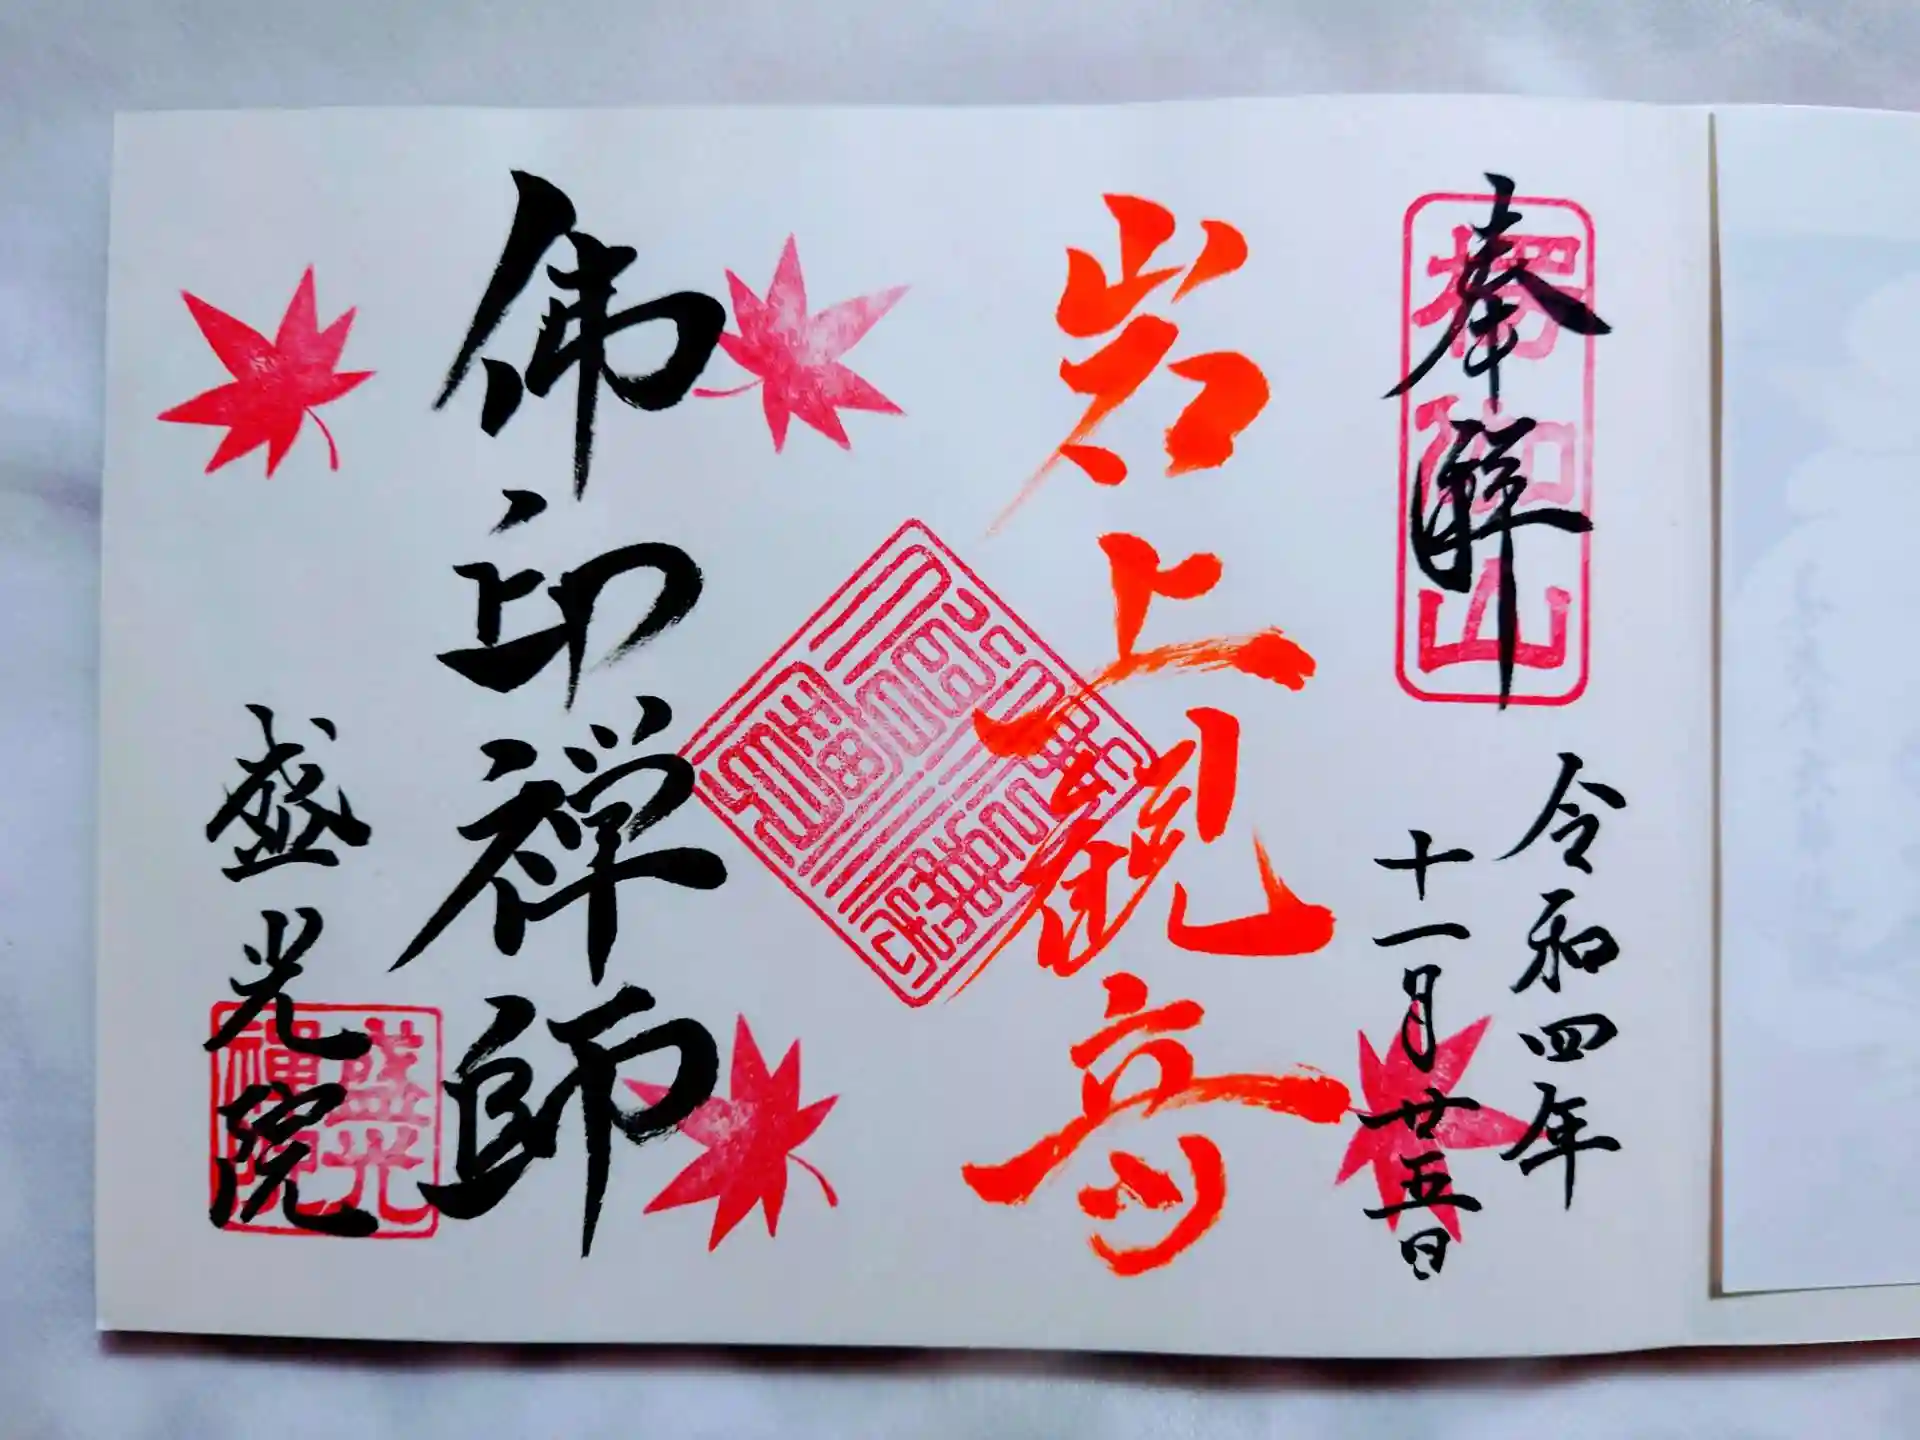 奉拝
楞伽山
令和四年
十一月廿五日
岩上観音
佛印禅師
盛光院
盛光
禪院